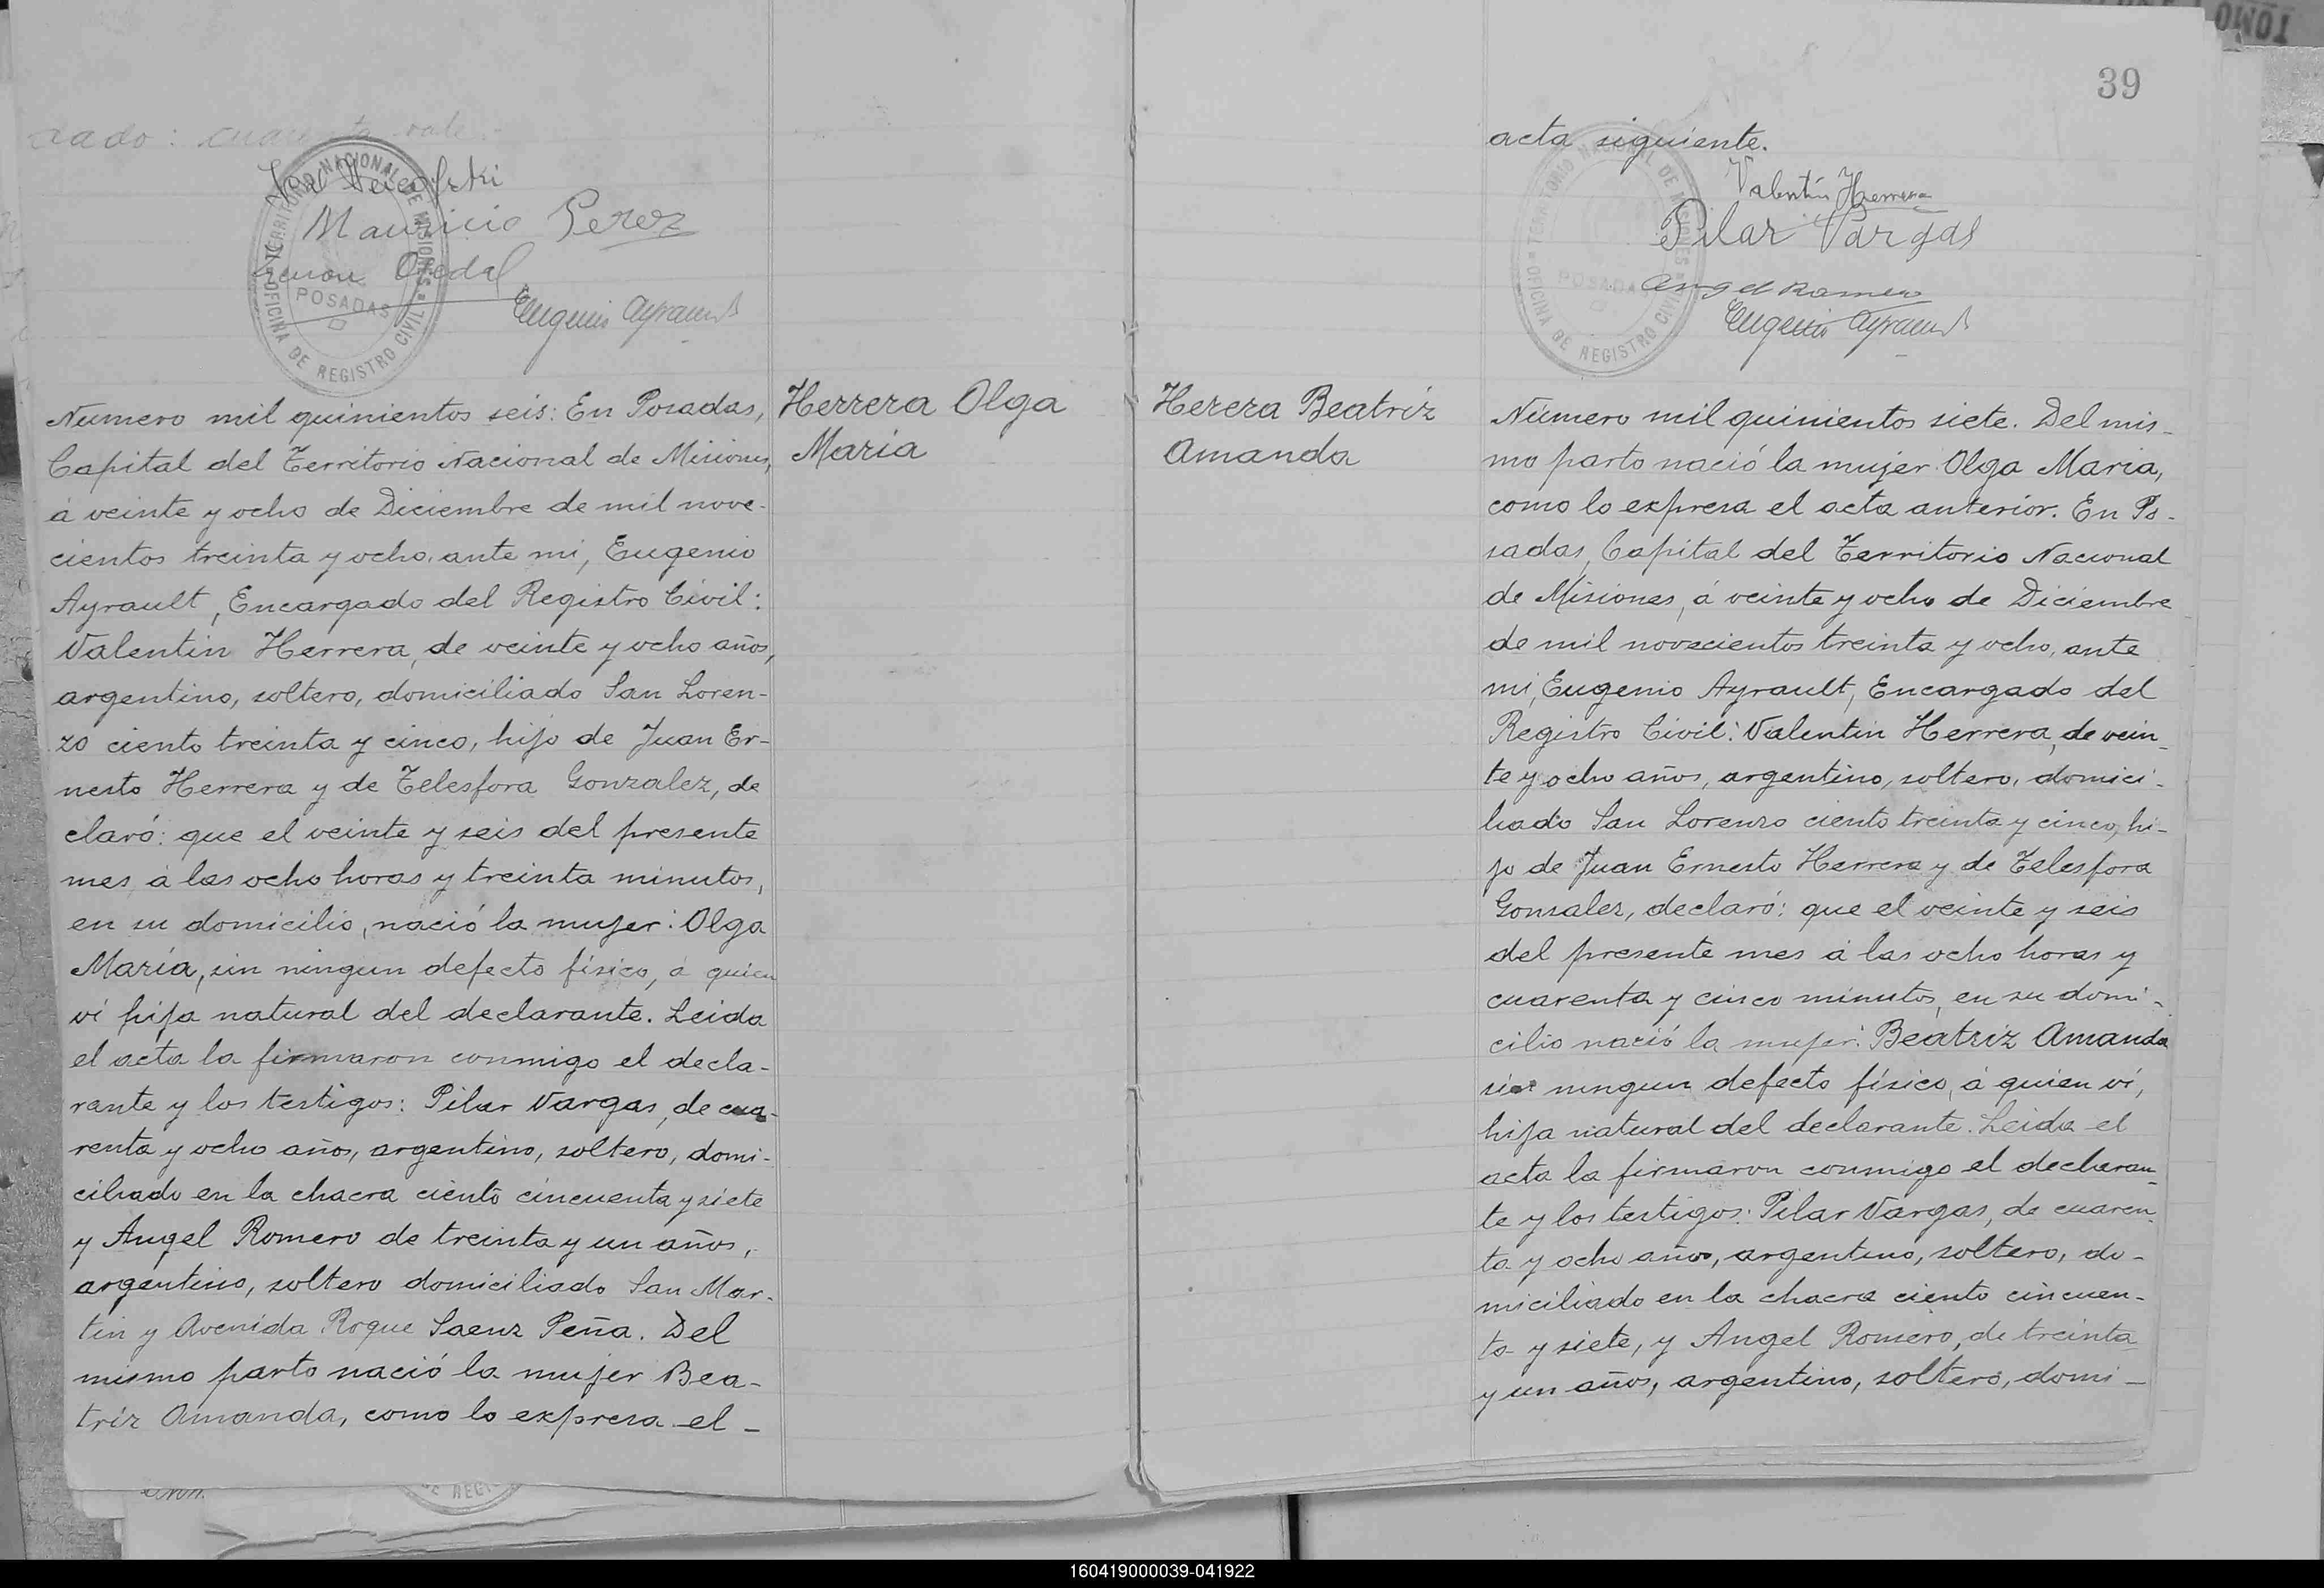 TOMO
39
rado: cuarenta vale.
Mauricio Perez
Ojeda
Eugenio Ayrault
TERRITORIO NACIONAL DE MISIONES
POSADAS
OFICINA DE REGISTRO CIVIL
Herrera Olga
María
Número mil quinientos seis: En Posadas,
Capital del Territorio Nacional de Misiones,
á veinte y ocho de Diciembre de mil nove-
cientos treinta y ocho, ante mi, Eugenio
Ayrault, Encargado del Registro Civil:
Valentin Herrera, de veinte y ocho años,
argentino, soltero, domiciliado San Loren-
zo ciento treinta y cinco, hijo de Juan Er-
nesto Herrera y de Telesfora Gonzalez, de
claró: que el veinte y seis del presente
mes á las ocho horas y treinta minutos,
en su domicilio, nació la mujer: Olga
María, sin ningun defecto físico, á quien
ví hija natural del declarante. Leida
el acta la firmaron conmigo el decla-
rante y los testigos: Pilar Vargas, de cua-
renta y ocho años, argentino, soltero, domi-
ciliado en la chacra ciento cincuenta y siete
y Angel Romero de treinta y un años,
argentino, soltero domiciliado San Mar-
tin y Avenida Roque Saenz Peña. Del
mismo parto nació la mujer Bea-
tríz Amanda, como lo expresa el -
acta siguiente.
Valentín Herrera
Pilar Vargas
Angel Romero
Eugenio Ayrault
TERRITORIO NACIONAL DE MISIONES
POSADAS
OFICINA DE REGISTRO CIVIL
Herera Beatríz
Amanda
Número mil quinientos siete. Del mis-
mo parto nació la mujer Olga Maria,
como lo expresa el acta anterior. En Po-
sadas, Capital del Territorio Nacional
de Misiones, á veinte y ocho de Diciembre
de mil novecientos treinta y ocho, ante
mi, Eugenio Ayrault, Encargado del
Registro Civil: Valentin Herrera, de vein-
te y ocho años, argentino, soltero, domici-
liado San Lorenzo ciento treinta y cinco, hi-
jo de Juan Ernesto Herrera y de Telesfora
Gonzalez, declaró: que el veinte y seis
del presente mes á las ocho horas y
cuarenta y cinco minutos, en su domi-
cilio nació la mujer: Beatriz Amanda
sin ningun defecto físico, á quien ví,
hija natural del declarante. Leida el
acta la firmaron conmigo el declaran-
te y los testigos: Pilar Vargas, de cuaren-
ta y ocho años, argentino, soltero, do-
miciliado en la chacra ciento cincuen-
ta y siete, y Angel Romero, de treinta
y un años, argentino, soltero, domi-
160419000039-041922